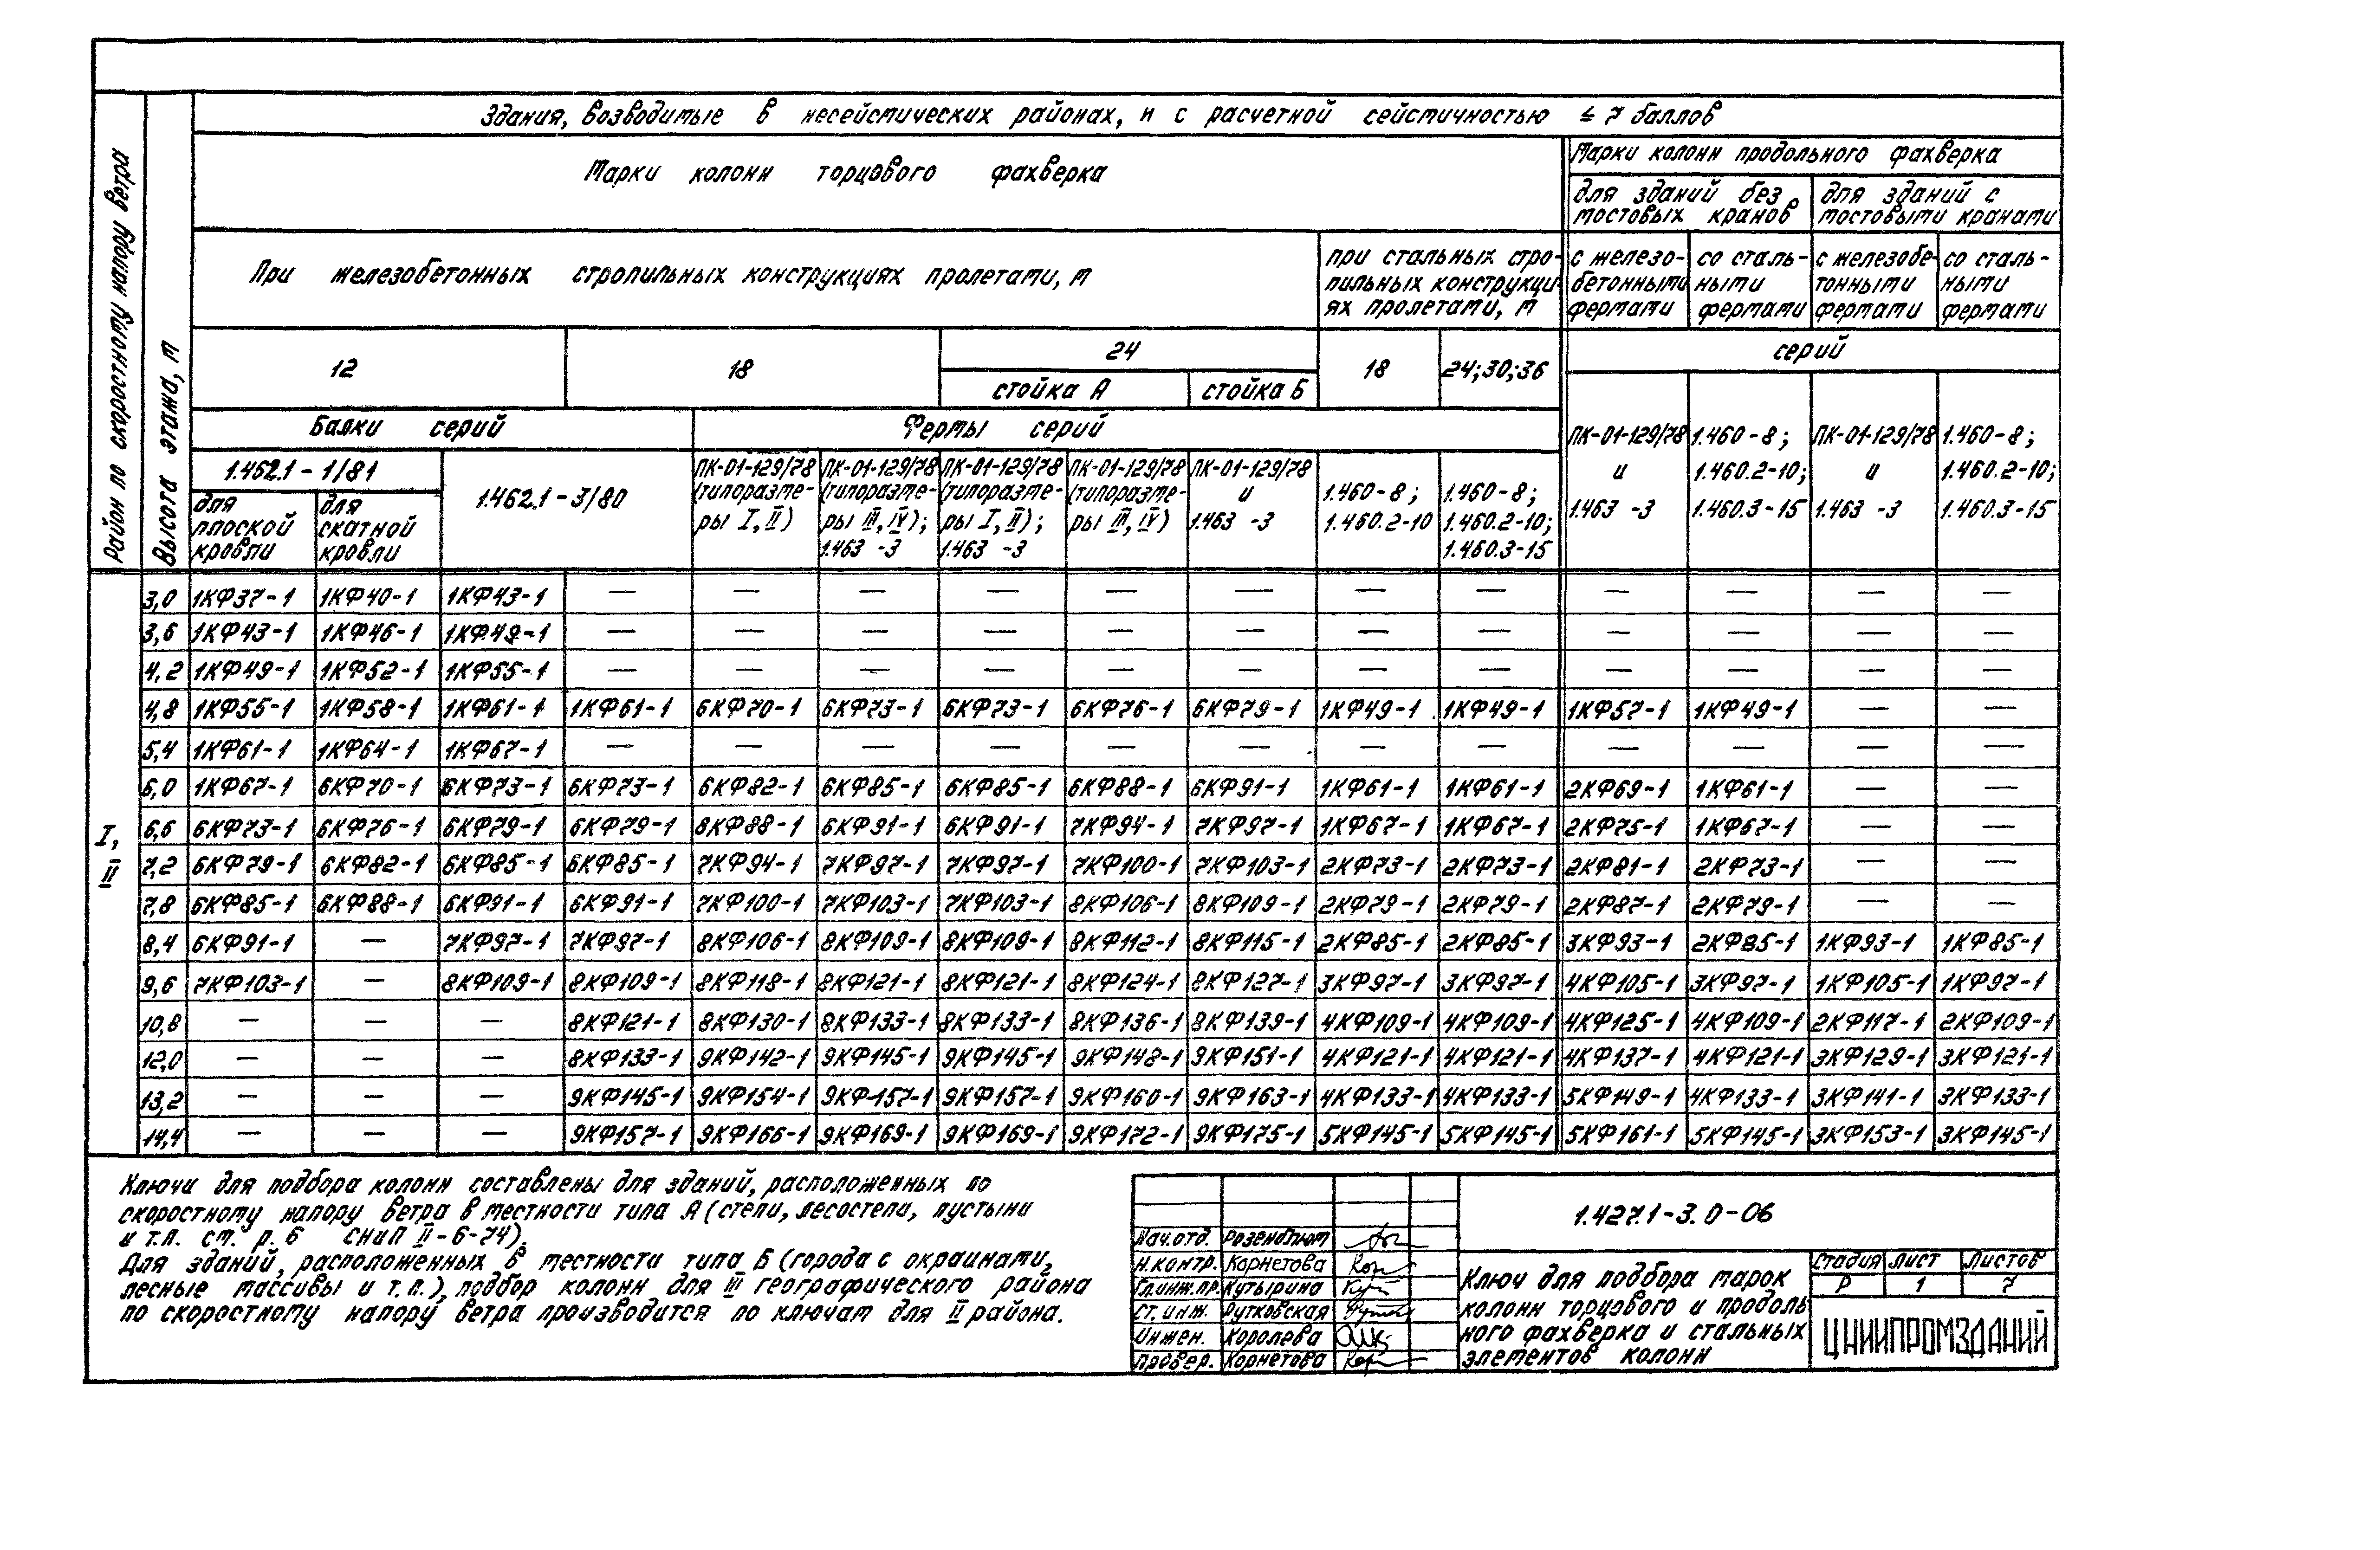 Здания, возводимые в несейсмических районах, и с расчетной сейсмичностью ≤ 7 баллов
Район по скоростному напору ветра
Высота этажа, м
Марки колонн торцового фахверка
Марки колонн продольного фахверка
для зданий без мостовых кранов
для зданий с мостовыми кранами
При железобетонных стропильных конструкциях пролетами, м
при стальных стро-
пильных конструкци-
ях пролетами, м
с железо-
бетонными
фермами
со сталь-
ными
фермами
с железобе-
тонными
фермами
со сталь-
ными
фермами
12 18 24 18 24;30;36
стойка А стойка Б
серий
Балки серий Фермы серий
1.462.1-1/81
для плоской кровли
для скатной кровли
1.462.1-3/80
ПК-01-129/78 (типоразме-
ры I, II)
ПК-01-129/78 (типоразме-
ры III, IV);
1.463 -3
ПК-01-129/78 (типоразме-
ры I, II);
1.463 -3
ПК-01-129/78 (типоразме-
ры III, IV)
ПК-01-129/78
и
1.463 -3
1.460-8;
1.460.2-10
1.460-8;
1.460.2-10;
1.460.3-15
ПК-01-129/78
и
1.463 -3
1.460-8;
1.460.2-10;
1.460.3-15
ПК-01-129/78
и
1.463 -3
1.460-8;
1.460.2-10;
1.460.3-15
I,
II
3,0 1КФ37-1 1КФ40-1 1КФ43-1 — — — — — — — — — — — —
3,6 1КФ43-1 1КФ46-1 1КФ49-1 — — — — — — — — — — — —
4,2 1КФ49-1 1КФ52-1 1КФ55-1 — — — — — — — — — — — —
4,8 1КФ55-1 1КФ58-1 1КФ61-1 1КФ61-1 6КФ70-1 6КФ73-1 6КФ73-1 6КФ76-1 6КФ79-1 1КФ49-1 1КФ49-1 1КФ57-1 1КФ49-1 — —
5,4 1КФ61-1 1КФ64-1 1КФ67-1 — — — — — — — — — — — —
6,0 1КФ67-1 6КФ70-1 6КФ73-1 6КФ73-1 6КФ82-1 6КФ85-1 6КФ85-1 6КФ88-1 6КФ91-1 1КФ61-1 1КФ61-1 2КФ69-1 1КФ61-1 — —
6,6 6КФ73-1 6КФ76-1 6КФ79-1 6КФ79-1 8КФ88-1 6КФ91-1 6КФ91-1 7КФ94-1 7КФ97-1 1КФ67-1 1КФ67-1 2КФ75-1 1КФ67-1 — —
7,2 6КФ79-1 6КФ82-1 6КФ85-1 6КФ85-1 7КФ94-1 7КФ97-1 7КФ97-1 7КФ100-1 7КФ103-1 2КФ73-1 2КФ73-1 2КФ81-1 2КФ73-1 — —
7,8 6КФ85-1 6КФ88-1 6КФ91-1 6КФ91-1 7КФ100-1 7КФ103-1 7КФ103-1 8КФ106-1 8КФ109-1 2КФ79-1 2КФ79-1 2КФ87-1 2КФ79-1 — —
8,4 6КФ91-1 — 7КФ97-1 7КФ97-1 8КФ106-1 8КФ109-1 8КФ109-1 8КФ112-1 8КФ115-1 2КФ85-1 2КФ85-1 3КФ93-1 2КФ85-1 1КФ93-1 1КФ85-1
9,6 7КФ103-1 — 8КФ109-1 8КФ109-1 8КФ118-1 8КФ121-1 8КФ121-1 8КФ124-1 8КФ127-1 3КФ97-1 3КФ97-1 4КФ105-1 3КФ97-1 1КФ105-1 1КФ97-1
10,8 — — — 8КФ121-1 8КФ130-1 8КФ133-1 8КФ133-1 8КФ136-1 8КФ139-1 4КФ109-1 4КФ109-1 4КФ125-1 4КФ109-1 2КФ117-1 2КФ109-1
12,0 — — — 8КФ133-1 9КФ142-1 9КФ145-1 9КФ145-1 9КФ148-1 9КФ151-1 4КФ121-1 4КФ121-1 4КФ137-1 4КФ121-1 3КФ129-1 3КФ121-1
13,2 — — — 9КФ145-1 9КФ154-1 9КФ157-1 9КФ157-1 9КФ160-1 9КФ163-1 4КФ133-1 4КФ133-1 5КФ149-1 4КФ133-1 3КФ141-1 3КФ133-1
14,4 — — — 9КФ157-1 9КФ166-1 9КФ169-1 9КФ169-1 9КФ172-1 9КФ175-1 5КФ145-1 5КФ145-1 5КФ161-1 5КФ145-1 3КФ153-1 3КФ145-1
Ключи для подбора колонн составлены для зданий, расположенных по
скоростному напору ветра в местности типа А (степи, лесостепи, пустыни
и т.п. см. р. 6 СНиП II-6-74).
Для зданий, расположенных в местности типа Б (города с окраинами,
лесные массивы и т.п.), подбор колонн для III географического района
по скоростному напору ветра производится по ключам для II района.
Нач.отд. Розенблюм
Н.контр. Корнетова
Гл.инж.пр. Кутырина
Ст. инж. Рутковская
Инжен. Королева
Провер. Корнетова
1.427.1-3.0-06
Ключ для подбора марок
колонн торцового и продоль
ного фахверка и стальных
элементов колонн
Стадия Лист Листов
Р 1 7
ЦНИИПРОМЗДАНИЙ